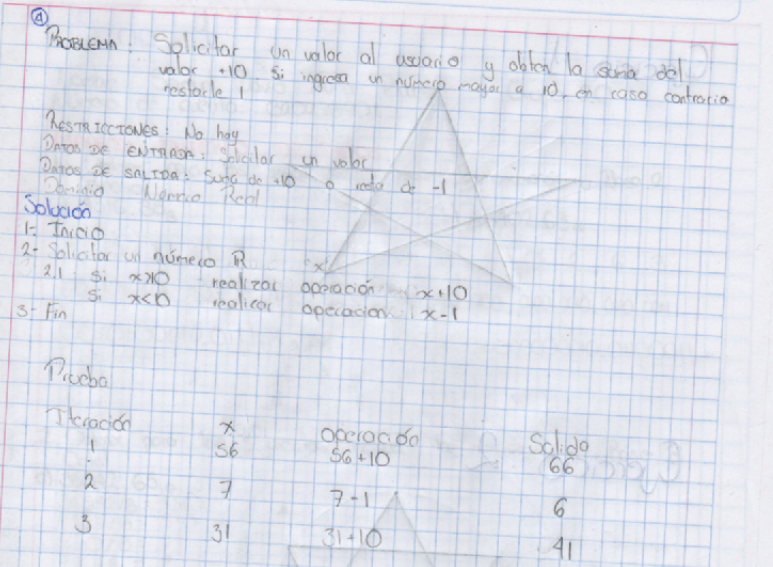 ④
PROBLEMA: Solicitar un valor al usuario y obten la suma del
valor +10 si ingresa un número mayor a 10, en caso contrario
restarle 1
RESTRICCIONES: No hay
DATOS DE ENTRADA: Solicitar un valor
DATOS DE SALIDA: Suma de +10 o resta de -1
Dominio Número Real
Solución
1- Inicio
2- Solicitar un número R "x"
2.1 Si x>10 realizar operación x+10
Si x<10 realizar operación x-1
3- Fin
Prueba
Iteración x operación Salida
1 56 56+10 66
2 7 7-1 6
3 31 31+10 41